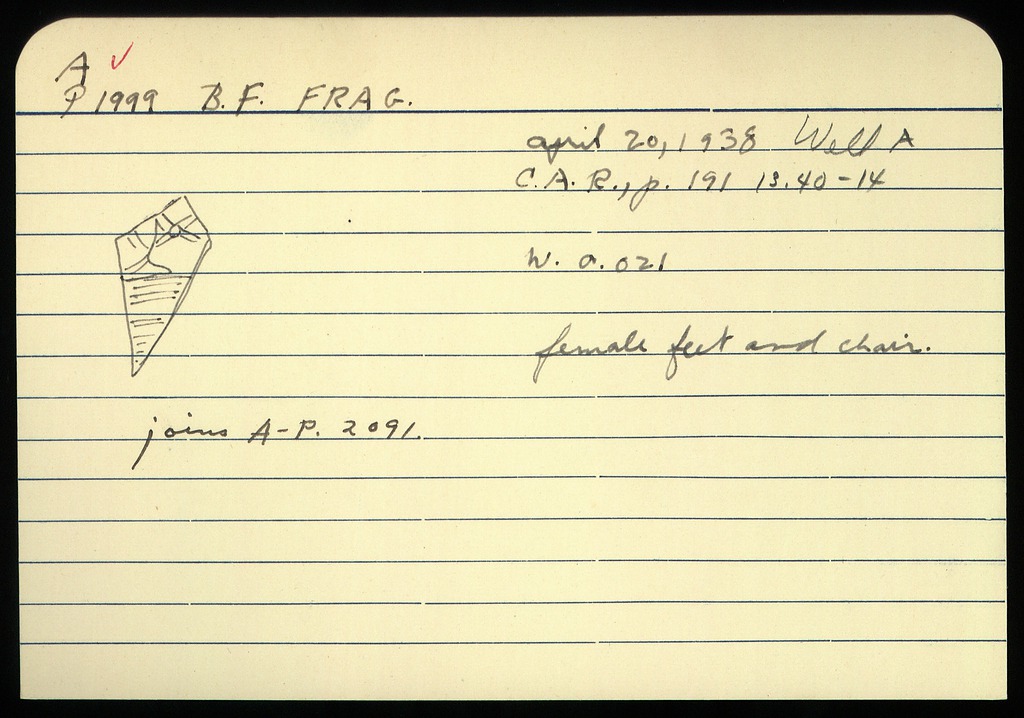 A ✓
P 1999 B.F. FRAG.
april 20, 1938 Well A
C.A.R., p. 191 13.40-14
W. a. 021
female feet and chair.
joins A-P. 2091.